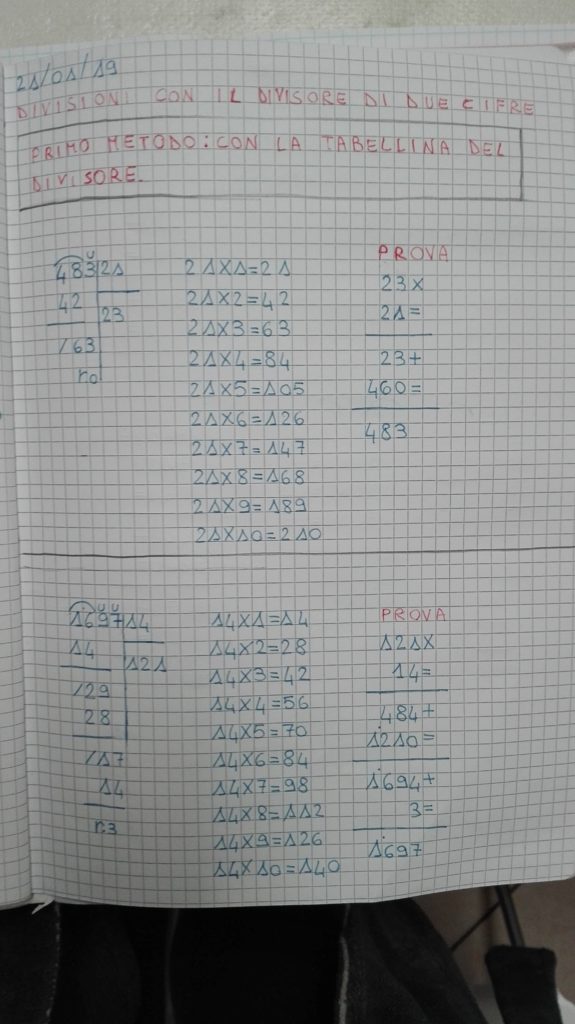 21/01/19
DIVISIONI CON IL DIVISORE DI DUE CIFRE
PRIMO METODO: CON LA TABELLINA DEL
DIVISORE.
483 21
42 23
/63
r0
21X1=21
21X2=42
21X3=63
21X4=84
21X5=105
21X6=126
21X7=147
21X8=168
21X9=189
21X10=210
PROVA
23X
21=
23+
460=
483
1697 14
14 121
/29
28
/17
14
r.3
14X1=14
14X2=28
14X3=42
14X4=56
14X5=70
14X6=84
14X7=98
14X8=112
14X9=126
14X10=140
PROVA
121X
14=
484+
1210=
1694+
3=
1697